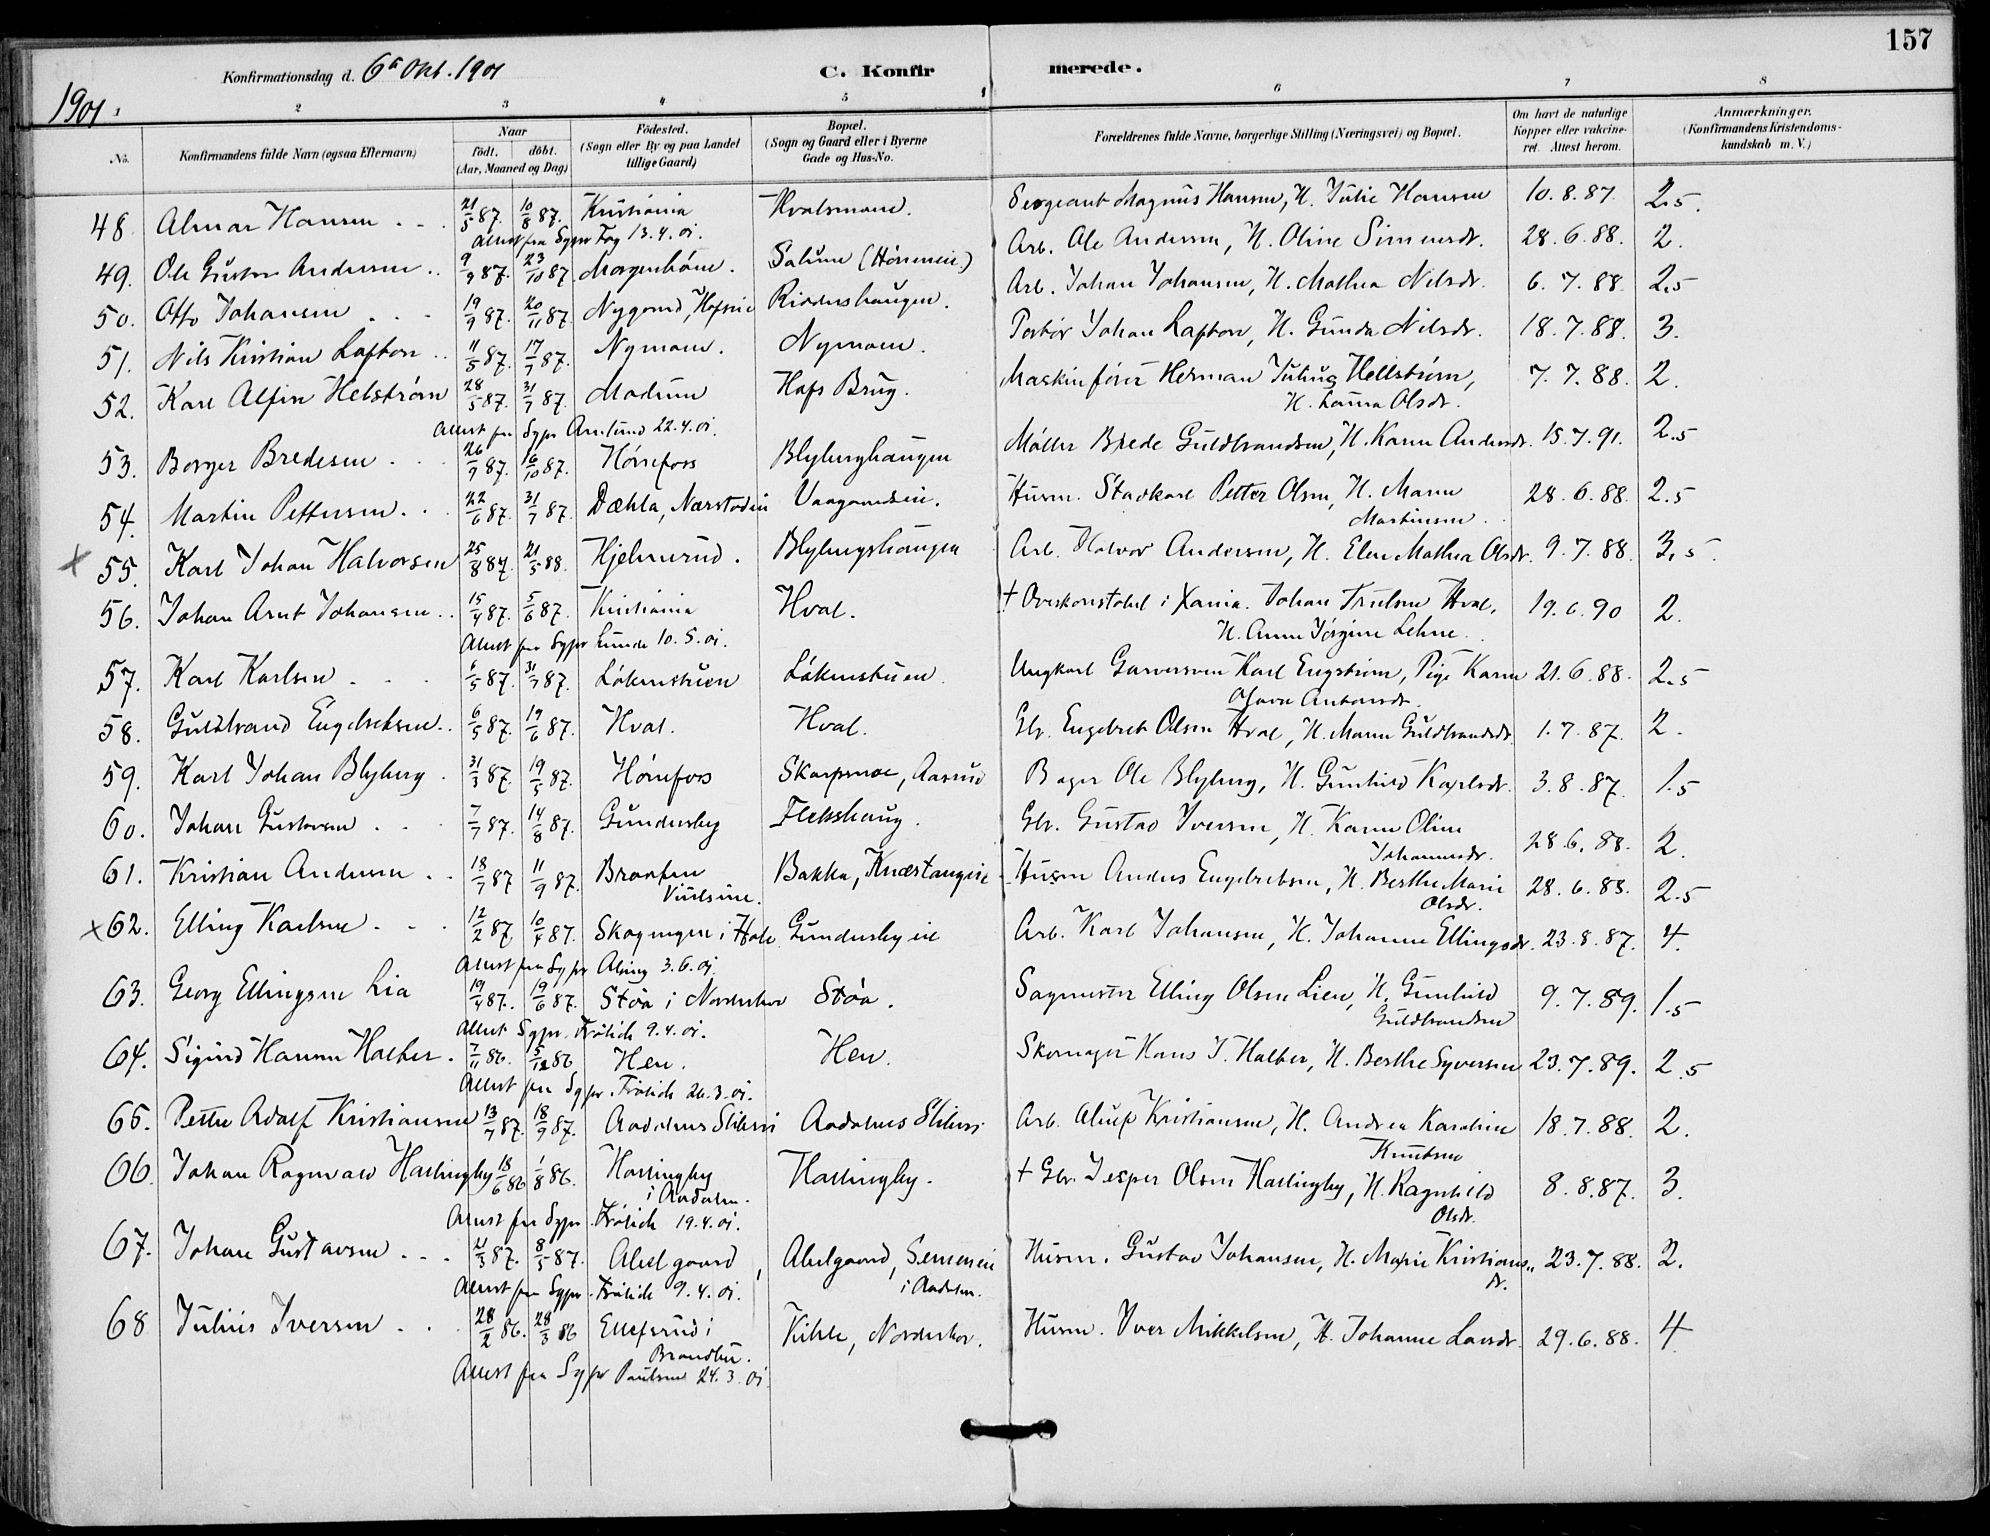 157
Konfirmationsdag d. 6te Okt. 1901
C. Konfirmerede.
1901
1 2 3 4 5 6 7 8
No. Konfirmandens fulde Navn (ogsaa Efternavn) Naar födt. döbt. (Aar, Maaned og Dag) Födested. (Sogn eller By og paa Landet tillige Gaard) Bopæl. (Sogn og Gaard eller i Byerne Gade og Hus-No. Forældrenes fulde Navne, borgerlige Stilling (Næringsvei) og Bopæl. Om havt de naturlige Kopper eller vakcineret. Attest herom. Anmærkninger. (Konfirmandens Kristendomskundskab m. V.)
48. Almar Hansen 21/5 87. 10/8 87. Kristiania Hvalsmoen. Sergeant Magnus Hansen, H. Julie Hansen 10.8.87. 2.5.
Attest fra Sgpr 13.4.01.
49. Ole Gustav Andersen 9/9 87. 23/10 87 Solum Arb. Ole Andersen, H. Oline Simensdr. 28.6.88. 2.
50. Otto Johansen 19/9 87. 20/11 87. Nygaard, Hofseie Arb. Johan Johansen, H. Mathea Nilsdr. 6.7.88. 2.5
51. Nils Kristian Lafton 11/5 87. 17/7 87. Nymoen. Nymoen. Portør Johan Lafton, H. Gunda Nilsdr. 18.7.88. 3.
52. Karl Alfin Helstrøm 28/5 87. 31/7 87. Modum Hofs Brug. Maskinfører Herman Julius Hellstrøm, 7.7.88. 2.
H. Laura Olsdr.
Attest fra Sgpr 22.4.01.
53. Borger Bredesen 26/7 87. 16/10 87. Hønefoss Blyberghaugen Møller Brede Guldbrandsen, H. Karen Andersdr. 15.7.91. 2.5
54. Martin Pettersen 22/6 87. 31/7 87. Dæhla, Nærstadeie Vaagaardseie. Husm. Stadkarl Petter Olsen, H. Maren 28.6.88. 2.5
Martinsen
x 55. Karl Johan Halvorsen 25/8 87. 21/5 88. Hjelmerud. Blybergshaugen Arb. Halvor Andersen, H. Elen Mathea Olsdr. 9.7.88. 3.5.
56. Johan Arnt Johansen 15/4 87. 5/6 87. Kristiania Hval. † Overkonstabel i Xania. Johan Trulsen Hval, 19.6.90 2.
H. Anne Jørgine Lehne.
Attest fra Sgpr Lunde 10.5.01.
57. Karl Karlsen 6/5 87. 31/7 87. Løkenstuen Løkenstuen. Ungkarl Garversvend Karl Engstrøm, Pige Karen 21.6.88. 2.5
Olava Antonsdr.
58. Guldbrand Engebretsen 6/5 87. 19/6 87. Hval. Hval. Gbr. Engebret Olsen Hval, H. Maren Guldbrandsdr. 1.7.87. 2.
59. Karl Johan Blyberg 31/3 87. 19/5 87. Hønefoss Skarpsnoe, Aasrud Bager Ole Blyberg, H. Gunhild Karlsdr. 3.8.87. 1.5
60. Johan Gustavsen 7/7 87. 14/8 87. Gundersby Flekshaug. Gbr. Gustav Iversen, H. Karen Oline 28.6.88. 2.
Johannesdr.
61. Kristian Andersen 18/7 87 11/9 87. Braaten Bakka, Knæstangeie Husm Anders Engebretsen, H. Berthe Marie 28.6.88. 2.5
Olsdr.
x 62. Elling Karlsen 12/2 87. 10/4 87. i Hole Gundersbyeie Arb. Karl Johansen, H. Johanne Ellingsdr. 23.8.87. 4.
Attest fra Sgpr 3.6.01.
63. Georg Ellingsen Lia 19/4 87. 19/6 87. Støa i Norderhov Støa. Sagmester Elling Olsen Lien, H. Gunhild 9.7.89. 1.5
Guldbrandsen
Attest Sgpr. Frölich 9.4.01.
64. Sigurd Hansen Halber. 7/11 86. 5/12 86 Hen. Hen. Skomager Hans J. Halber, H. Berthe Syversen 23.7.89. 2.5
Attest fra Sgpr. Frölich 26.3.01.
65. Petter Adolf Kristiansen 13/7 87. 18/9 87. Aadalens Sliberi Aadalens Sliberi Arb. Kristiansen, H. Andrea Karoline 18.7.88. 2.
Knutsen
66. Johan Ragnvald Hallingby 18/6 86 1/8 86. Hallingby Hallingby. † Gbr. Jesper Olsen Hallingby, H. Ragnhild 8.8.87. 3.
i Aadalen. Olsdr.
Attest fra Sgpr. Frölich 19.4.01.
67. Johan Gustavsen 21/3 87. 8/5 87. Abelgaard Abelgaard, Semmeneie Husm. Gustav Johansen, H. Marie Kristians„ 23.7.88. 2.
i Aadalen. dr.
Attest fra Sgpr. Frölich 9.4.01.
68 Julius Iversen 28/2 86. 28/3 86 Ellefsrud i Kihle, Norderhov. Husm. Iver Mikkelsen, H. Johanne Larsdr. 29.6.88. 4
Brandbu.
Attest fra Sgpr Paulsen 24.3.01.